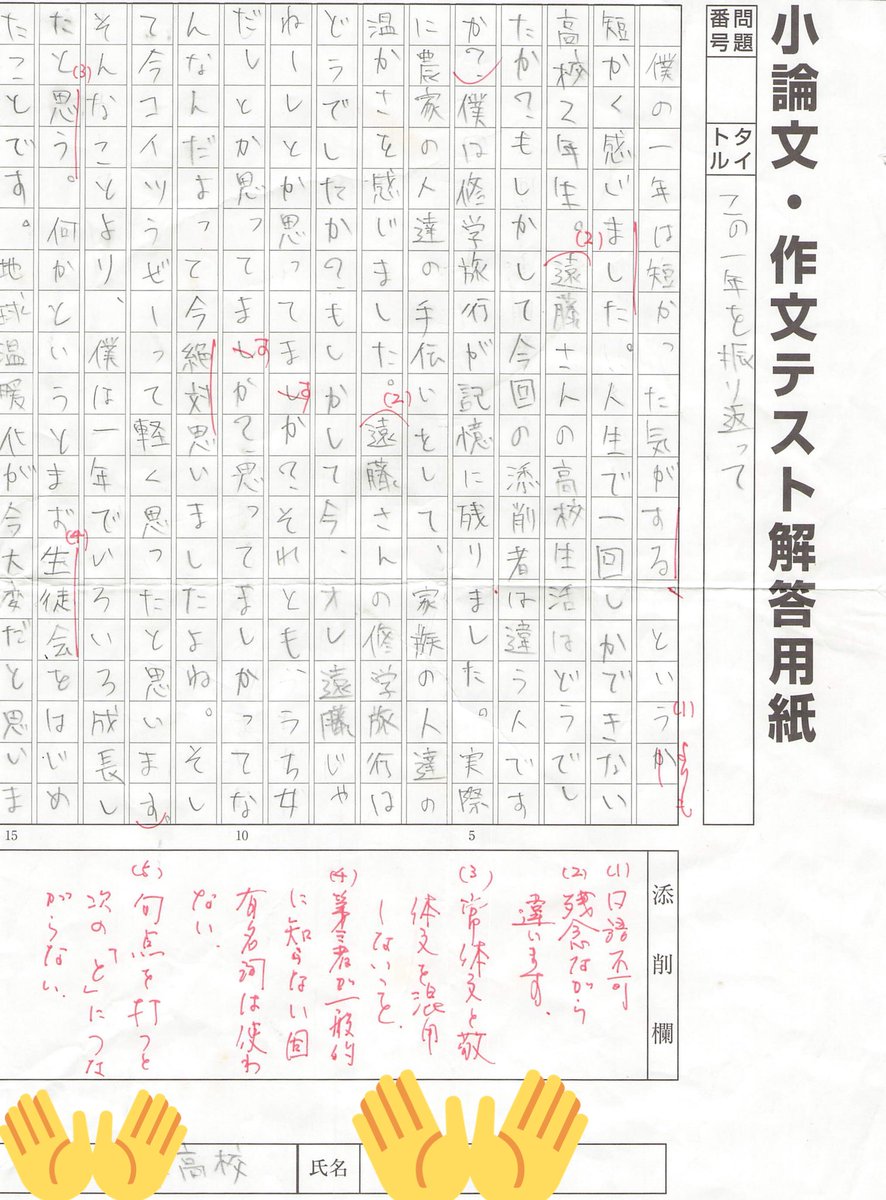 小論文・作文テスト解答用紙
問題番号
タイトル
この一年を振り返って
僕の一年は短かった気がする というか
(1)
よりも
短かく感じました。人生で一回しかできない
高校2年生。遠藤さんの高校生活はどうでし
(2)
たか?もしかして今回の添削者は違う人です
か?僕は修学旅行が記憶に残りました。実際
に農家の人達の手伝いをして、家族の人達の
温かさを感じました。遠藤さんの修学旅行は
(2)
どうでしたか?もしかして今、オレ遠藤じゃ
ねーしとか思ってましか?それとも、うち女
す
だしとか思ってましか?思ってましかってな
す
んなんだよって今絶対思いましたよね。そし
て今コイツうぜーって軽く思ったと思います。
そんなことより、僕は一年でいろいろ成長し
たと思う。何かというとまず生徒会をはじめ
(3)
(4)
たことです。地球温暖化が今大変だと思いま
5
10
15
添削欄
(1)口語不可
(2)残念ながら
違います。
(3)常体文と敬
体文を混用
しないこと。
(4)第三者が一般的
に知らない固
有名詞は使わ
ない.
(5)句点を打つと
次の「と」につな
がらない.
氏名
高校